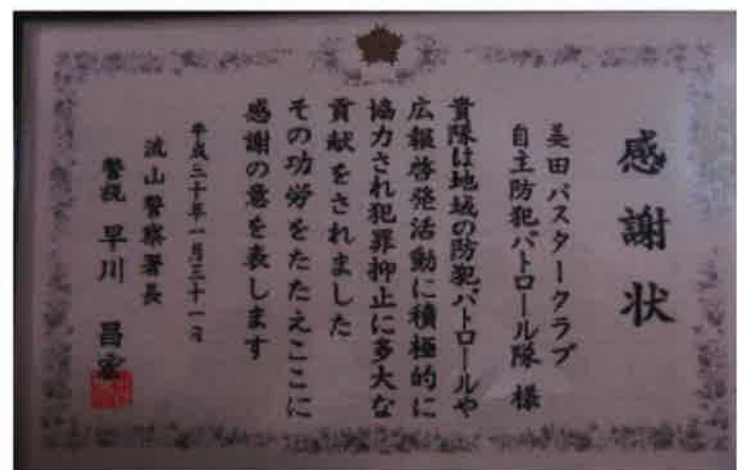 感謝状
美田バスタークラブ
自主防犯パトロール隊 様
貴隊は地域の防犯パトロールや
広報啓発活動に積極的に
協力され犯罪抑止に多大な
貢献をされました
その功労をたたえここに
感謝の意を表します
平成三十年一月三十一日
流山警察署長
警視 早川 昌宏